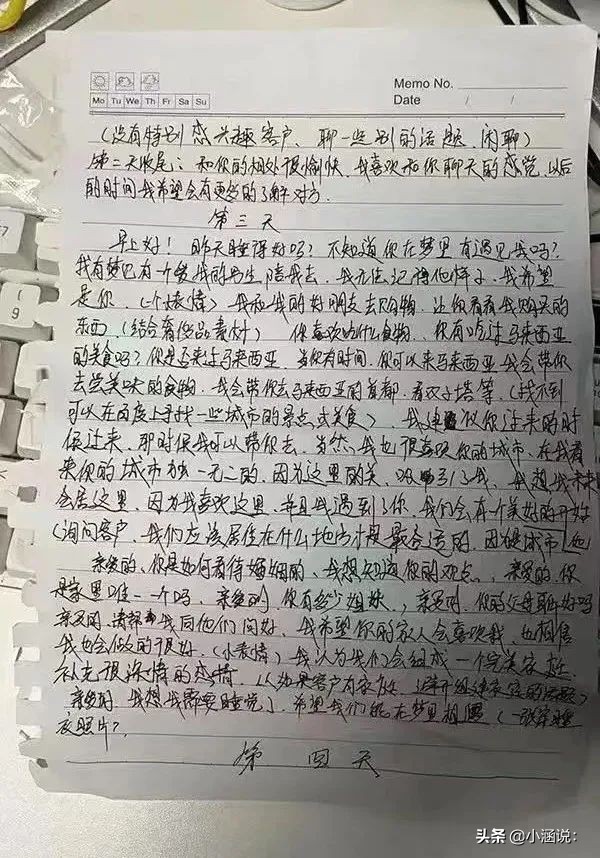 Memo No.
Mo Tu We Th Fr Sa Su
Date / /
(没有特别感兴趣客户、聊一些别的话题、闲聊)
第二天收尾:和你的相处很愉快、我喜欢和你聊天的感觉、以后
的时间我希望会有更多的了解对方.
第三天
早上好!昨天睡得好吗?不知道你在梦里有遇见我吗?
我有梦见有一个爱我的男生陪我去、我无法记得他样子、我希望
是你、(一个表情)我和我的好朋友去购物、让你看看我购买的
东西、(结合奢侈品素材)你喜欢吃什么食物、你有吃过马来西亚
的美食吗?你是否来过马来西亚、当你有时间、你可以来马来西亚我会带你
去尝美味的食物、我会带你去马来西亚的首都、看双子塔等(找不到
可以在百度上寻找一些城市的景点或美食)、我建议你过来的时
候过来、那时候我可以带你去、当然我也很喜欢你的城市、在我看
来你的城市独一无二的、因为这里的美、吸引了我、我想我未来
会居这里、因为我喜欢这里、并且我遇到了你、我们会有一个美好的开始
(询问客户、我们应该居住在什么地方才是最合适的、因
亲爱的、你是如何看待婚姻的、我想知道你的观点、亲爱的、你
是家里唯一一个吗、亲爱的、你有多少姐妹、亲爱的、你的父母都好吗
亲爱的、请帮我同他们问好、我希望你的家人会喜欢我、也相信
我也会做的很好、(小表情)我认为我们会组成一个完美家庭
补充很深情的感情、以如果客户有家庭、(避开组建家庭的话题)
亲爱的、我想我需要睡觉了、希望我们能在梦里相遇(一张穿睡
衣照片?
第四天
头条 @小涵说: